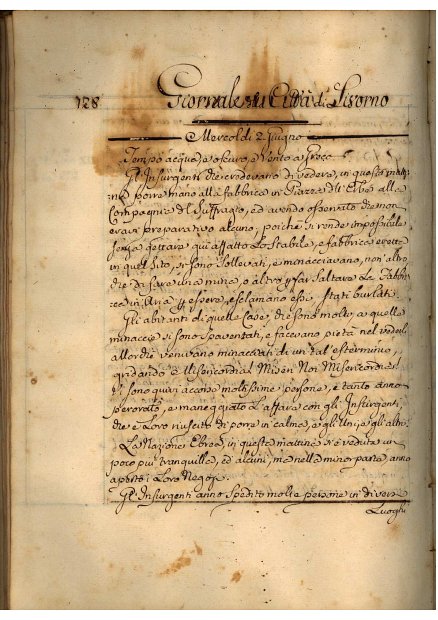 128 Giornale di Città di Livorno
Mercoldi 2. Giugno
Tempo acquoso, e oscuro, e Vento a Greco
Gl'Insurgenti che credevano di vedere, in questa matti-
na porre mano alla fabbrica in Piazza dell'Erbe alla
Compagnia del Suffragio, ed avendo osservato che non
eravi preparativo alcuno, poiche si rende impossibile
senza gettare qui affatto lo stabile, e fabbrica eretta
in quel sito, si sono sollevati, e minacciavano, non altro
che di fare una mina, o altro p far saltare La Fabb-
rica in Aria p essere, esclamano essi, stati burlati.
Gli abitanti di quelle Case, che sono molti, a quelle
minaccie si sono spaventati, e facevano pietà nel vederli
allorche venivano minacciati da un tal esterminio,
gridando e Misericordia! Miseri Noi Misericordia!
Si sono quivi accorse moltissime persone, e tanto anno
perorato, e maneggiato L'affare con gli Insurgenti,
che è Loro riuscito di porre in calma, e gli Uni, e gli altri.
La Nazione Ebrea, in questa mattina si è veduta un
poco piu tranquilla, ed alcuni, ma nella minor parte, anno
aperto i Loro Negozi.
Gl'Insurgenti anno spedito molte persone in diversi
Luoghi